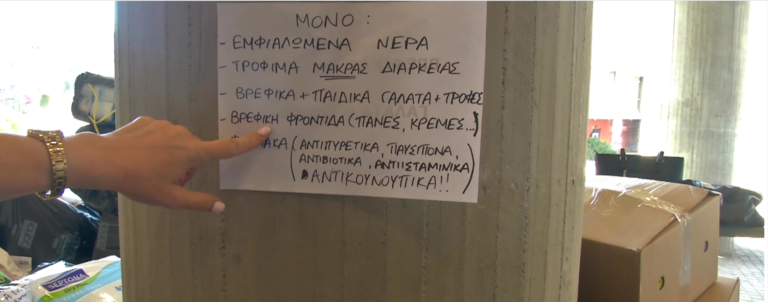 ΜΟΝΟ :
- ΕΜΦΙΑΛΩΜΕΝΑ ΝΕΡΑ
- ΤΡΟΦΙΜΑ ΜΑΚΡΑΣ ΔΙΑΡΚΕΙΑΣ
- ΒΡΕΦΙΚΑ + ΠΑΙΔΙΚΑ ΓΑΛΑΤΑ + ΤΡΟΦΕΣ
- ΒΡΕΦΙΚΗ ΦΡΟΝΤΙΔΑ (ΠΑΝΕΣ, ΚΡΕΜΕΣ...)
(ΑΝΤΙΠΥΡΕΤΙΚΑ, ΠΑΥΣΙΠΟΝΑ,
ΑΝΤΙΒΙΟΤΙΚΑ, ΑΝΤΙΙΣΤΑΜΙΝΙΚΑ
ΑΝΤΙΚΟΥΝΟΥΠΙΚΑ!!)
SEPTONA